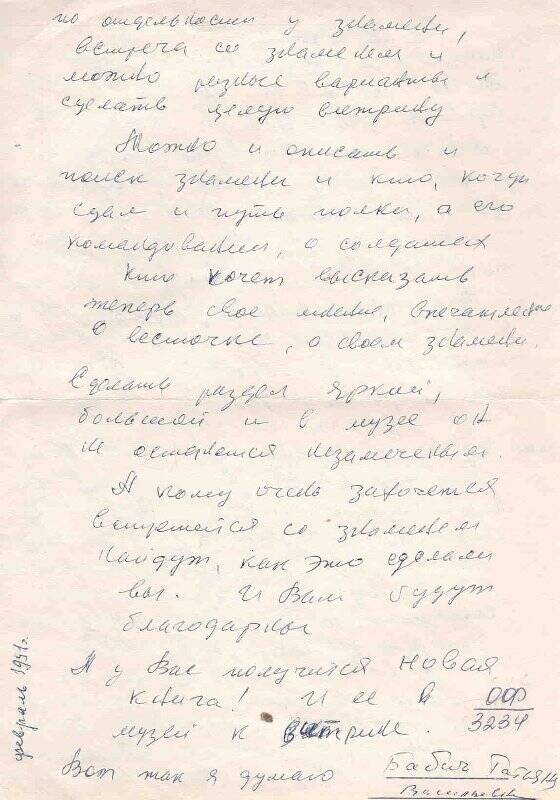 по отдельности у знамени,
встреча со знаменем и
можно разные варианты и
сделать целую витрину
Можно и описать и
поиск знамени и кто, когда
сдал и путь полка, о его
командовании, о солдатах
Кто хочет высказать
теперь свое мнение, впечатление
о весточке, о своем знамени.
Сделать раздел яркий,
большой и в музее он
не останется незамеченным.
А кому очень захочется
встретится со знаменем
найдут, как это сделали
вы. И Вам будут
благодарны
А у Вас получится новая
книга! И ее в
музей к витрине.
ОФ
3234
Вот так я думаю
Бабич Татьяна
Васильевна
февраль 1991г.